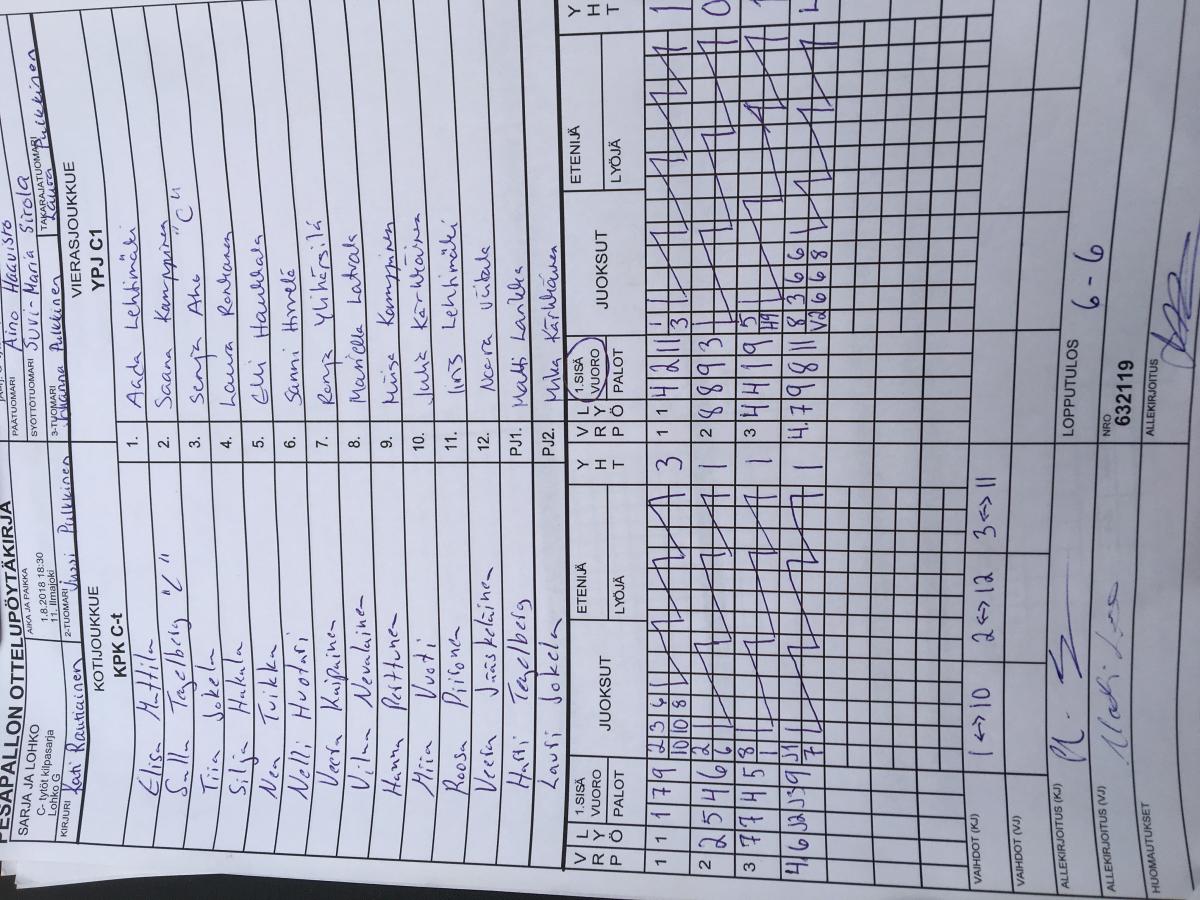 PESÄPALLON OTTELUPÖYTÄKIRJA
SARJA JA LOHKO
C- tytöt kilpasarja
Lohko G
AIKA JA PAIKKA
1.8.2018 18:30
11. Ilmajoki
PÄÄTUOMARI Aino Haavisto
SYÖTTÖTUOMARI Suvi-Maria Sirola
KIRJURI Kati Rautiainen
2-TUOMARI Jussi Pulkkinen
3-TUOMARI Johanna Pulkkinen
TAKARAJATUOMARI Laura Pulkkinen
KOTIJOUKKUE
KPK C-t
VIERASJOUKKUE
YPJ C1
Elisa Mattila 1. Aada Lehtimäki
Salla Tagelberg "C" 2. Saana Kamppinen
Tiia Jokela 3. Senja Aho "C"
Silja Hakala 4. Laura Rontianen
Nea Tuikka 5. Elli Haukkala
Nelli Huotari 6. Sanni Hirvelä
Veera Kuipainen 7. Ronja Ylihärsilä
Vilma Nevalainen 8. Marielle Latvala
Hanna Parttonen 9. Miisa Kamppinen
Miia Vuoti 10. Julia Kärkkäinen
Roosa Piironen 11. Iiris Lehtimäki
Veera Jääskeläinen 12. Neora
Harri Tagelberg PJ1. Matti Larikka
Lauri Jokela PJ2. Mika Kärkkäinen
VRP LYÖ 1.SISÄ VUORO PALOT JUOKSUT ETENIJÄ LYÖJÄ YHT VRP LYÖ 1.SISÄ VUORO PALOT JUOKSUT ETENIJÄ LYÖJÄ YHT
1 1 1 7 9 1 2 3 4 3 1 1 4 2 11 1 1
10 10 8 3
2 2 5 4 6 2 1 2 8 8 9 3 0
6
3 7 7 4 5 8 1 3 4 4 1 9 5 1
1 H9
4. 6 J2 J3 9 J1 1 4. 7 9 8 11 8 3 6 6
7 V2 6 6 8
VAIHDOT (KJ) 1<->10 2<->12 3<->11
VAIHDOT (VJ)
ALLEKIRJOITUS (KJ)
LOPPUTULOS 6 - 6
ALLEKIRJOITUS (VJ)
NRO
632119
HUOMAUTUKSET
ALLEKIRJOITUS